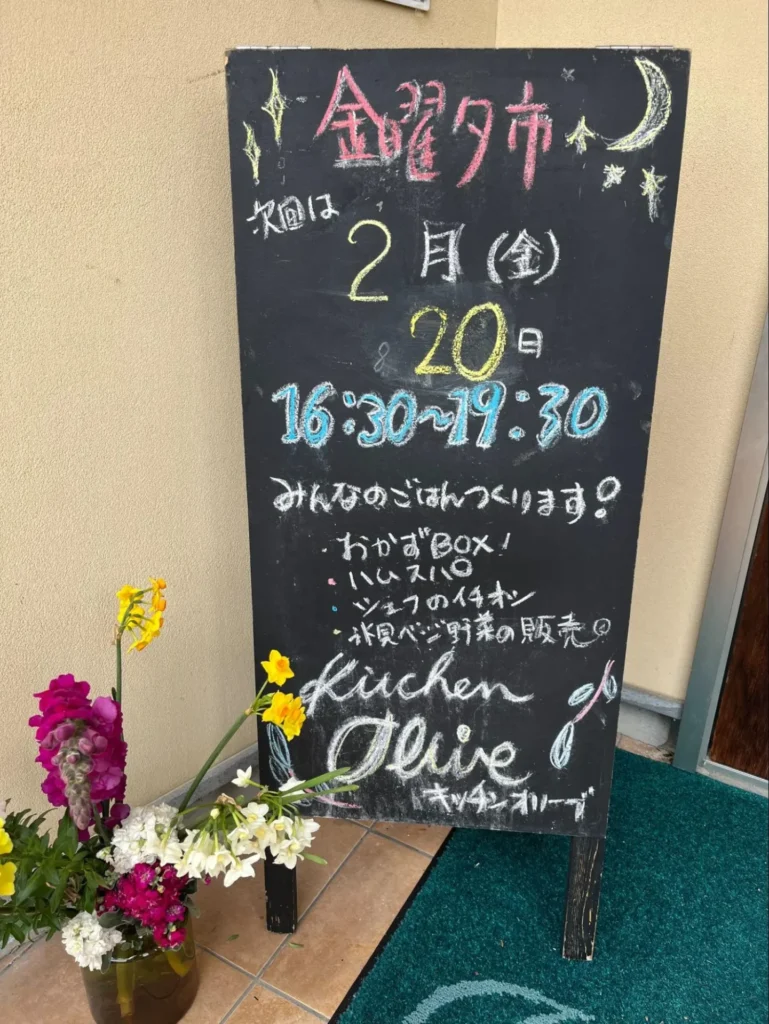 金曜夕市
次回は
2月(金)
20日
16:30~19:30
みんなのごはんつくります!
・おかずBOX!
・ハムスパ
・シェフのイチオシ
・氷見ベジ野菜の販売
Kitchen
Olive
キッチンオリーブ